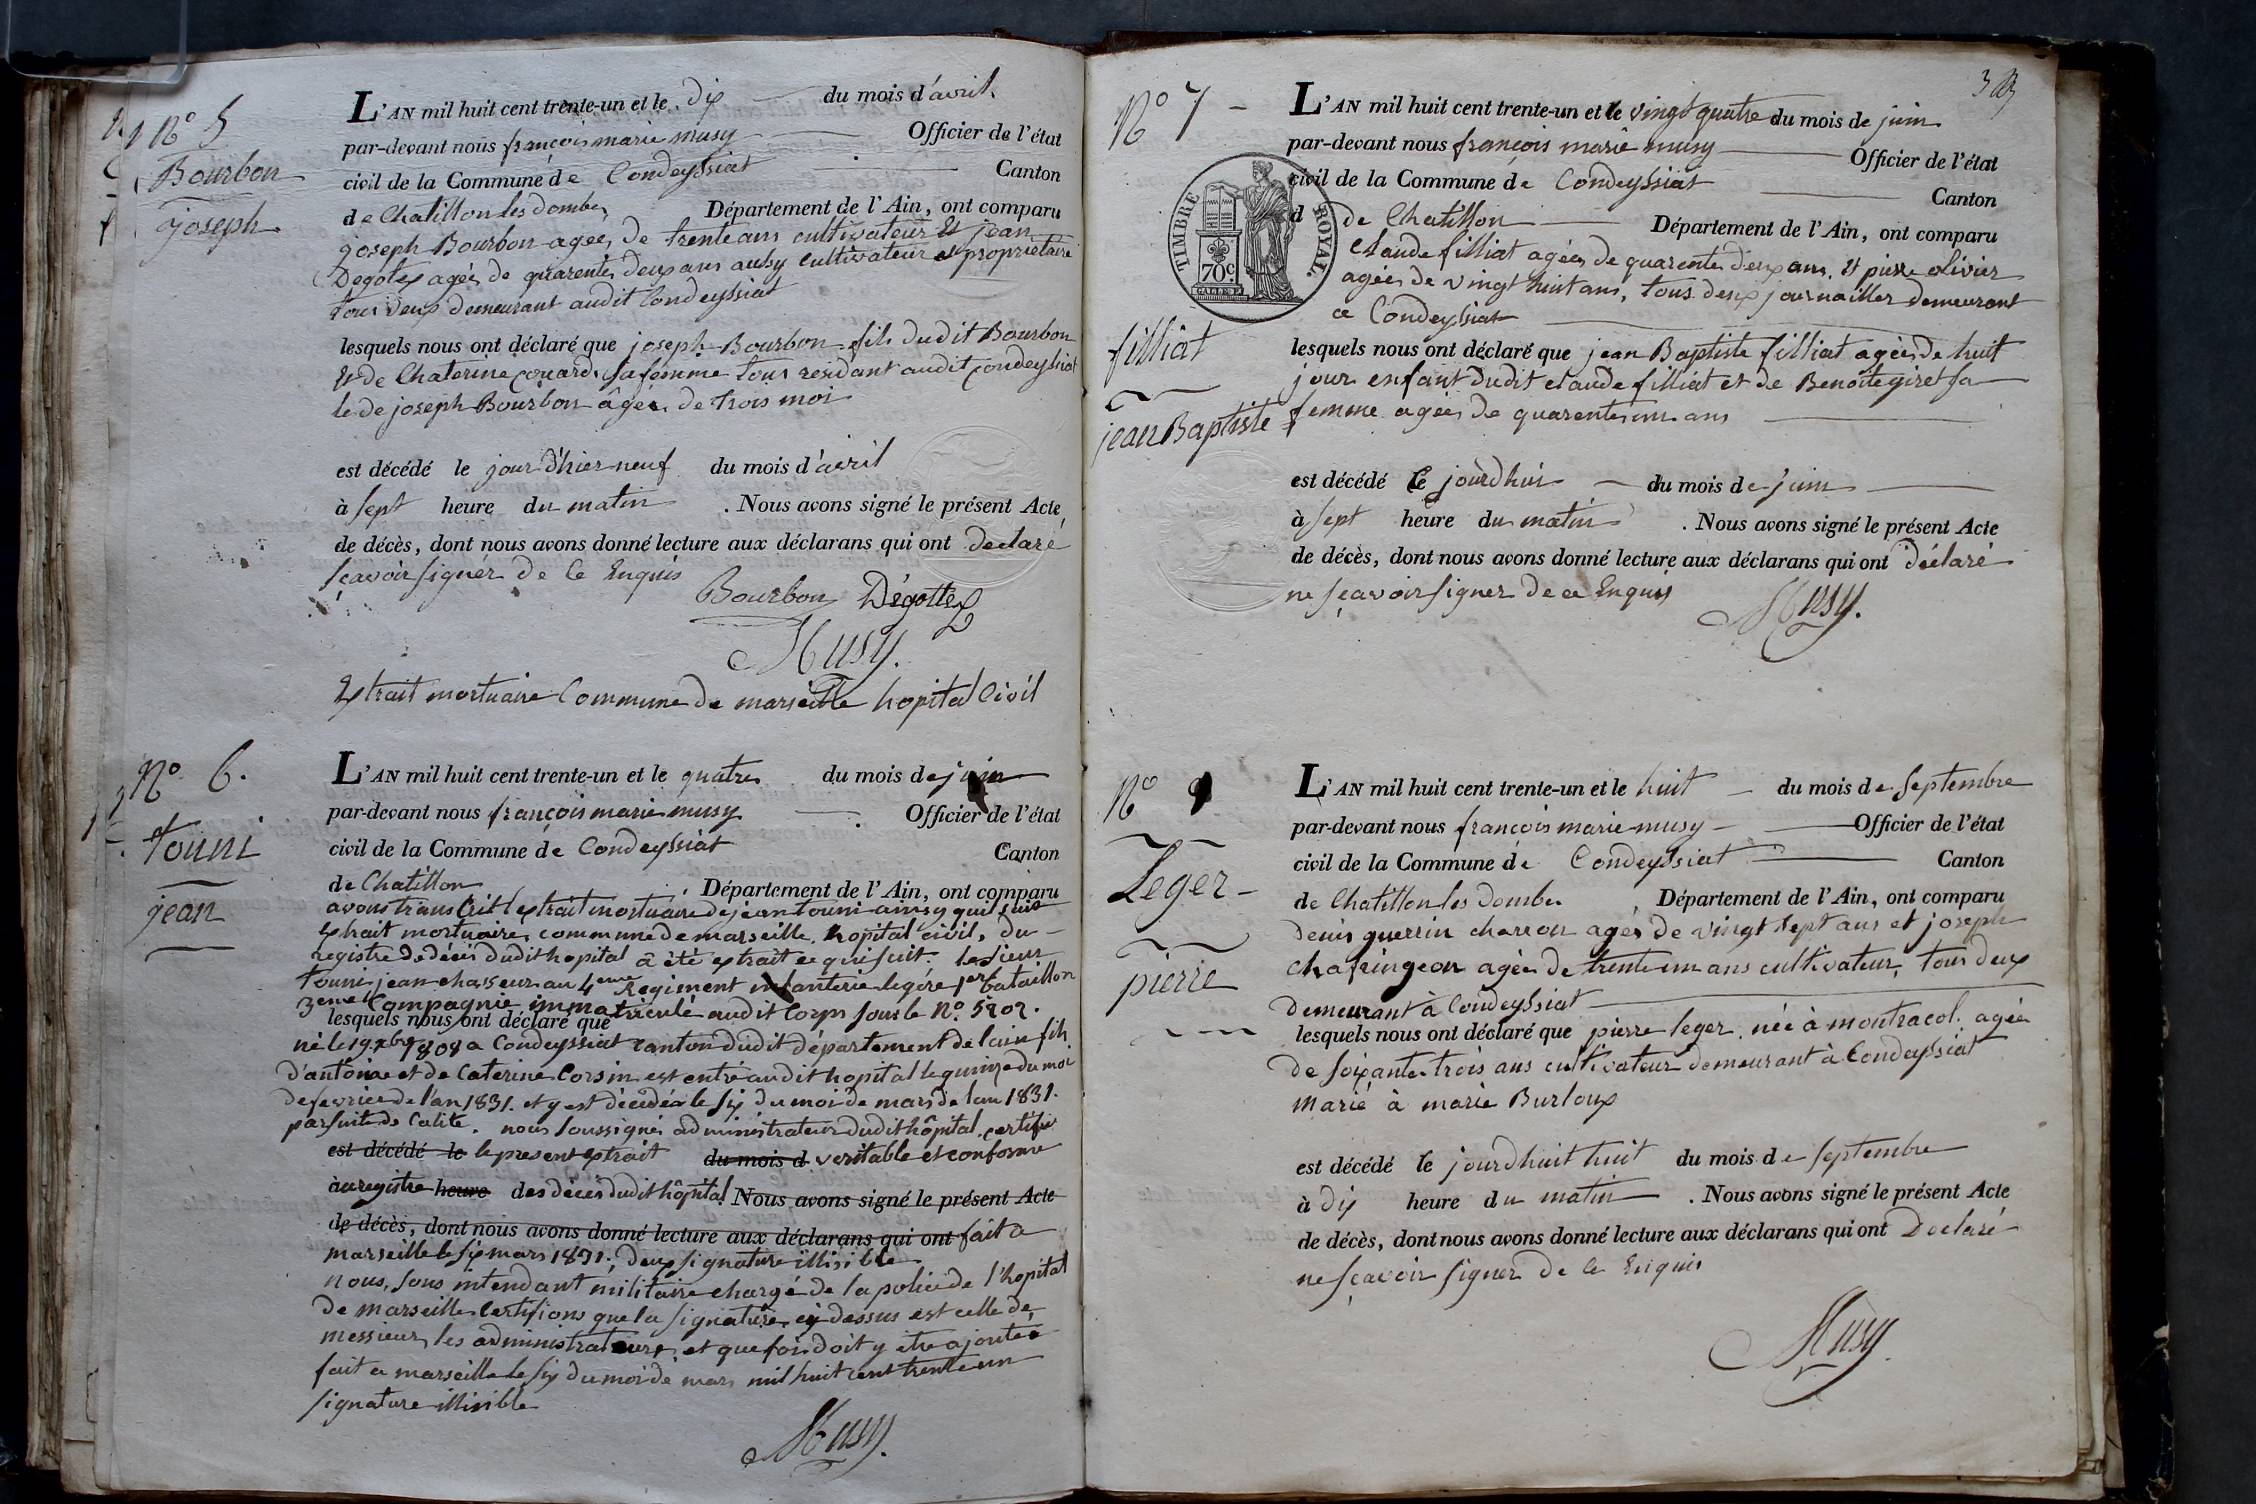 N° 5
Bourbon
joseph
L'AN mil huit cent trente-un et le dix du mois d'avril
par-devant nous françois marie musy Officier de l'état
civil de la Commune de Condeyssiat Canton
de Chatillon les dombes Département de l'Ain, ont comparu
joseph Bourbon agée de trente ans cultivateur et jean
Degotex agée de quarente deux ans aussy cultivateur et propriétaire
tous deux demeurant audit Condeyssiat
lesquels nous ont déclaré que joseph Bourbon fils dudit Bourbon
et de Chaterine couard sa femme tous residant audit condeyssiat
le de joseph Bourbon âgée de trois moi
est décédé le jour d'hier neuf du mois d'avril
à sept heure du matin . Nous avons signé le présent Acte
de décès, dont nous avons donné lecture aux déclarans qui ont declaré
sçavoir signér de ce Enquis
Bourbon Dégottex
Musy.
Extrait mortuaire Commune de marseille hopital Civil
N° 6.
touni
jean
L'AN mil huit cent trente-un et le quatre du mois de juin
par-devant nous françois marie musy Officier de l'état
civil de la Commune de Condeyssiat Canton
de Chatillon Département de l'Ain, ont comparu
avons transcrit l'extrait mortuaire de jean touni ainsy quil suit
Extrait mortuaire, commune de marseille, hopital civil, du
registre de décès dudit hopital a été extrait ce qui suit. le sieur
touni jean chasseur au 4eme Regiment infanterie legére 1er bataillon
3eme Compagnie immatriculé audit Corps sous le N° 5802.
lesquels nous ont déclaré que
né le 19 xbre 1808 a Condeyssiat canton dudit département de lain fils
d'antoine et de Caterine Corsin est entre audit hopital le quinze du moi
de fevrier de l'an 1831. et y est décédé le six du moi de mars de lan 1831.
par suite de Calite. nous soussignés administrateur dudit hôpital certifie
est décédé le le present extrait du mois d veritable et conforme
au registre heure des décès dudit hôpital Nous avons signé le présent Acte
de décès, dont nous avons donné lecture aux déclarans qui ont fait a
marseille le six mars 1831; deux signature illisible
nous, sous intendant militaire chargé de la police de l'hopital
de marseille Certifions que la signature cy dessus est celle de
messieurs les administrateurs et que foi doit y etre ajoutée
fait a marseille le six du moi de mars mil huit cent trente un
signature illisible
Musy.
3
N° 7
filliat
jean Baptiste
TIMBRE ROYAL.
70c
L'AN mil huit cent trente-un et le vingt quatre du mois de juin
par-devant nous françois marie musy Officier de l'état
civil de la Commune de Condeyssiat Canton
d de Chatillon Département de l'Ain, ont comparu
Claude filliat agée de quarente deux ans, et pierre olivier
agée de vingt huit ans, tous deux journallier demeurant
a Condeyssiat
lesquels nous ont déclaré que jean Baptiste filliat agée de huit
jour enfant dudit claude filliat et de Benoite giret sa
femme agée de quarente un ans
est décédé le jourdhui du mois de juin
à sept heure du matin . Nous avons signé le présent Acte
de décès, dont nous avons donné lecture aux déclarans qui ont déclaré
ne sçavoir signer de ce Enquis
Musy.
N°
Leger
pierre
L'AN mil huit cent trente-un et le huit du mois de Septembre
par-devant nous françois marie musy Officier de l'état
civil de la Commune de Condeyssiat Canton
de Chatillon les dombes Département de l'Ain, ont comparu
denis guerrin charron agés de vingt sept ans et joseph
Chafringeon agée de trente un ans cultivateur, tous deux
demeurant à Condeyssiat
lesquels nous ont déclaré que pierre leger née à montracol, agée
de soixante trois ans cultivateur demeurant à Condeyssiat
Marié à marie Burloux
est décédé le jourdhuit huit du mois de septembre
à dix heure du matin . Nous avons signé le présent Acte
de décès, dont nous avons donné lecture aux déclarans qui ont Declaré
ne sçavoir signer de ce Enquis
Musy